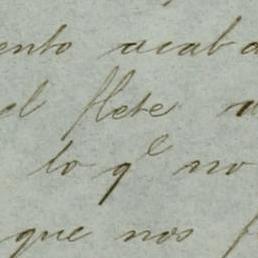 ento acab
el flete
lo q^e no
que nos